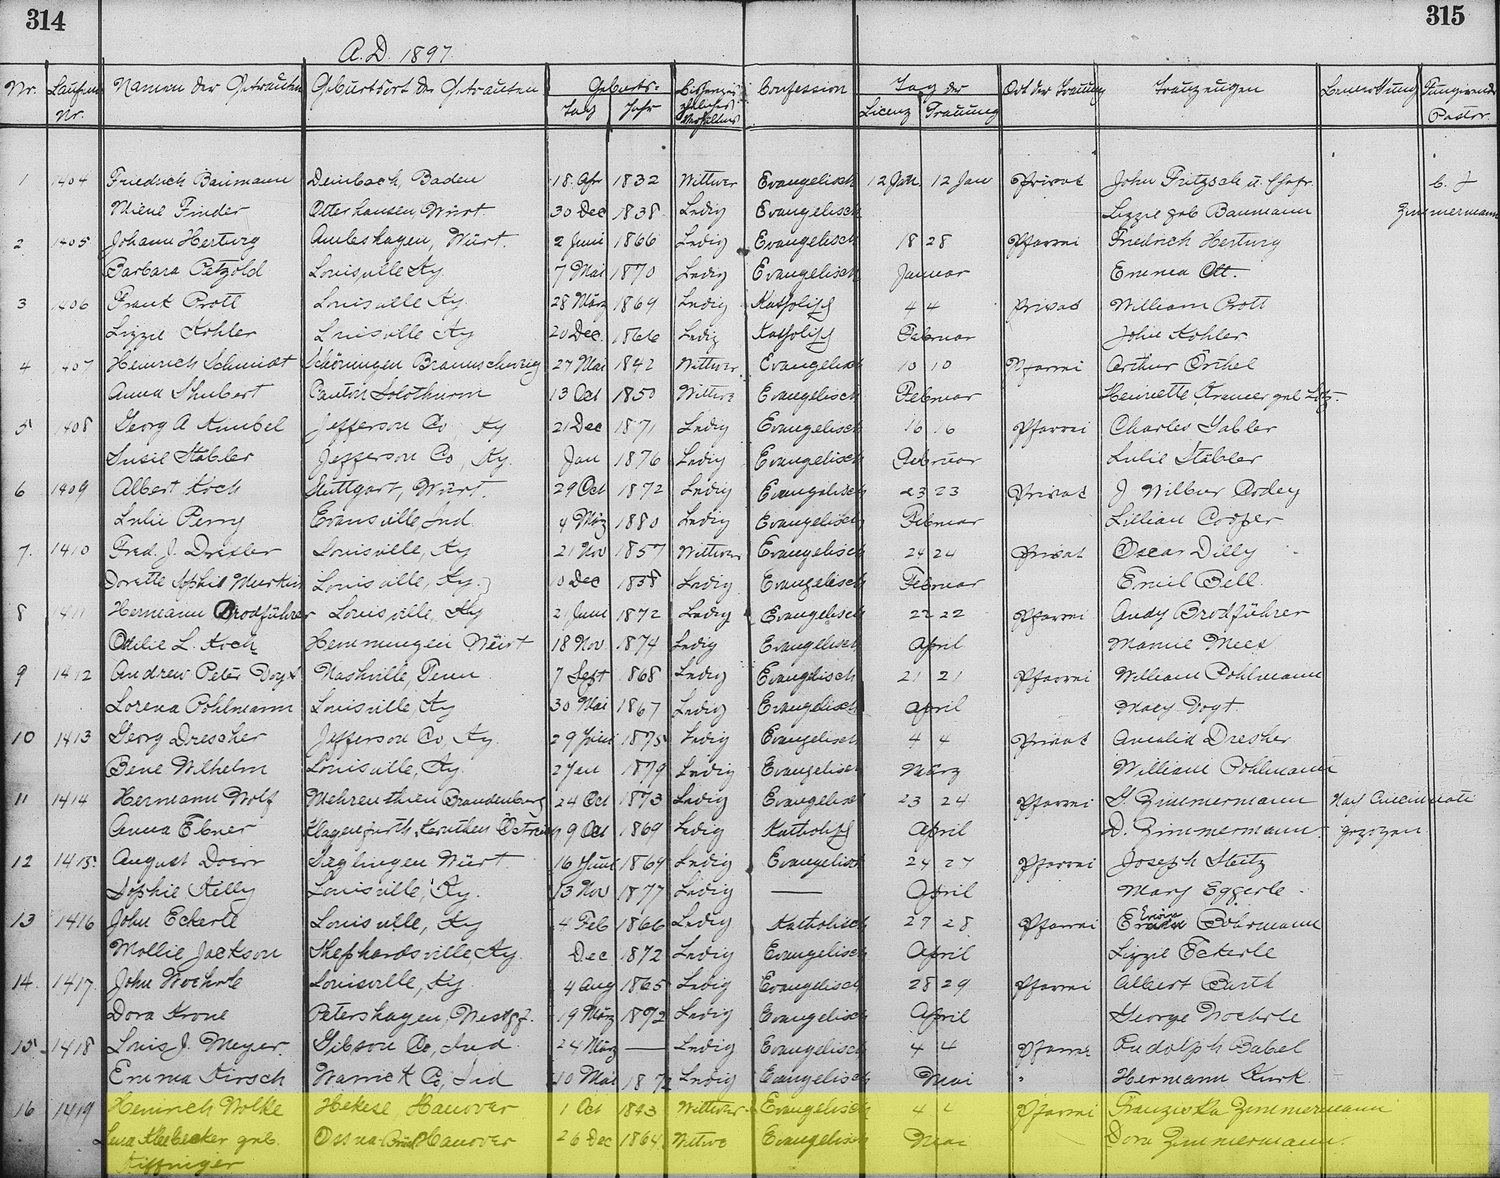 314
315
A.D. 1897
Nr. Laufende Nr. Namen der Getrauten Geburtsort der Getrauten Geburts- Tag Jahr Confession Tag der Licenz Trauung Ort der Trauung Trauzeugen Bemerkung Fungirende Pastor
1 1404 Friedrich Baumann Baden 18 Apr 1832 Wittwer Evangelisch 12 Jan 12 Jan Privat John Fritzsch u. C. J.
Finder Würt 30 Dec 1838 Ledig Evangelisch Lizzie geb Baumann Zimmermann
2 1405 Johann Hertwig Würt. 2 Juni 1866 Ledig Evangelisch 18 28 Pfarrei Friedrich Hertwig
Barbara Petzold Louisville Ky 7 Mai 1870 Ledig Evangelisch Januar Emma Ott.
3 1406 Frank Prott Louisville Ky. 28 März 1869 Ledig Katholisch 4 4 Privat William Prott
Lizzie Kohler Louisville Ky 20 Dec. 1866 Ledig Katholisch Februar John Kohler
4 1407 Heinrich Schmidt Schöningen Braunschweig 27 Mai 1842 Wittwer Evangelisch 10 10 Pfarrei Arthur
Anna Shubert Canton Solothurn 13 Oct 1850 Wittwe Evangelisch Februar Henriette Kramer geb
5 1408 Georg A Kunbel Jefferson Co, Ky 21 Dec 1871 Ledig Evangelisch 16 16 Pfarrei Charles Gabler
Susie Stäbler Jefferson Co, Ky. Jan 1876 Ledig Evangelisch Februar Lulie Stäbler
6 1409 Albert Koch Stuttgart, Würt. 29 Oct 1872 Ledig Evangelisch 23 23 Privat J Wilbur
Lulie Perry Evansville Ind 4 März 1880 Ledig Evangelisch Februar Lillian Cooper
7. 1410 Fred. J. Drexler Louisville, Ky 21 Nov 1857 Wittwer Evangelisch 24 24 Privat Oscar Dilly
Sophie Louisville, Ky. 10 Dec 1858 Ledig Evangelisch Februar Emil Bell.
8 1411 Hermann Brodführer Louisville, Ky 21 Juni 1872 Ledig Evangelisch 22 22 Pfarrei Andy Brodführer
Ottilie L. Koch Hemmingen Würt 18 Nov 1874 Ledig Evangelisch April Mamie
9 1412 Andrew Peter Voyt Nashville, Tenn 7 Sept 1868 Ledig Evangelisch 21 21 Pfarrei William Pohlmann
Lorena Pohlmann Louisville, Ky 30 Mai 1867 Ledig Evangelisch April Mary Voyt.
10 1413 Georg Drescher Jefferson Co, Ky. 29 1875 Ledig Evangelisch 4 4 Privat Amalia Dresher
Bene Wilhelm Louisville, Ky. 2 Jan 1879 Ledig Evangelisch März William Pohlmann
11 1414 Hermann Wolf Brandenburg 24 Oct 1873 Ledig Evangelisch 23 24 Pfarrei G. Zimmermann Nach Cincinnati
Anna Ebner Klagenfurth, Kärnthen 9 Oct 1869 Ledig Katholisch April D. Zimmermann gezogen
12 1415. August Doerr Würt 16 Juni 1869 Ledig Evangelisch 24 27 Pfarrei Joseph Steitz
Sophie Killy Louisville, Ky. 13 Nov 1877 Ledig — April Mary Eggerle.
13 1416 John Eckerle Louisville, Ky 4 Feb 1866 Ledig Katholisch 27 28 Pfarrei Erwin Bohrmann
Mollie Jackson Shephardsville, Ky. Dec 1872 Ledig Evangelisch April Lizzie Eckerle
14. 1417. John Woehrle Louisville, Ky. 4 Aug 1865 Ledig Evangelisch 28 29 Pfarrei Albert Barth
Dora Krone Petershagen, Westpf. 19 März 1872 Ledig Evangelisch April George Woehrle
15. 1418 Louis J. Meyer. Gibson Co, Ind. 24 März — Ledig Evangelisch 4 4 Pfarrei Rudolph Babel
Emma Kirsch Warrick Co, Ind 10 Mai 1872 Ledig Evangelisch Mai Hermann Kurk.
16 1419 Heinrich Nolke Hekese, Hanover 1 Oct 1843 Wittwer Evangelisch 4 4 Pfarrei Franziska Zimmermann
Lena Kleibecker geb. Hanover 26 Dec 1864 Wittwe Evangelisch Mai Dora Zimmermann.
Kiffmeyer